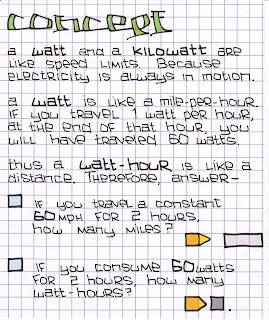 concept
a watt and a kilowatt are
like speed limits. Because
electricity is always in motion.
a watt is like a mile-per-hour.
if you travel 1 watt per hour,
at the end of that hour, you
will have traveled 60 watts.
thus a watt-hour is like a
distance. Therefore, answer-
if you travel a constant
60 mph for 2 hours,
how many miles?
if you consume 60 watts
for 2 hours, how many
watt-hours?